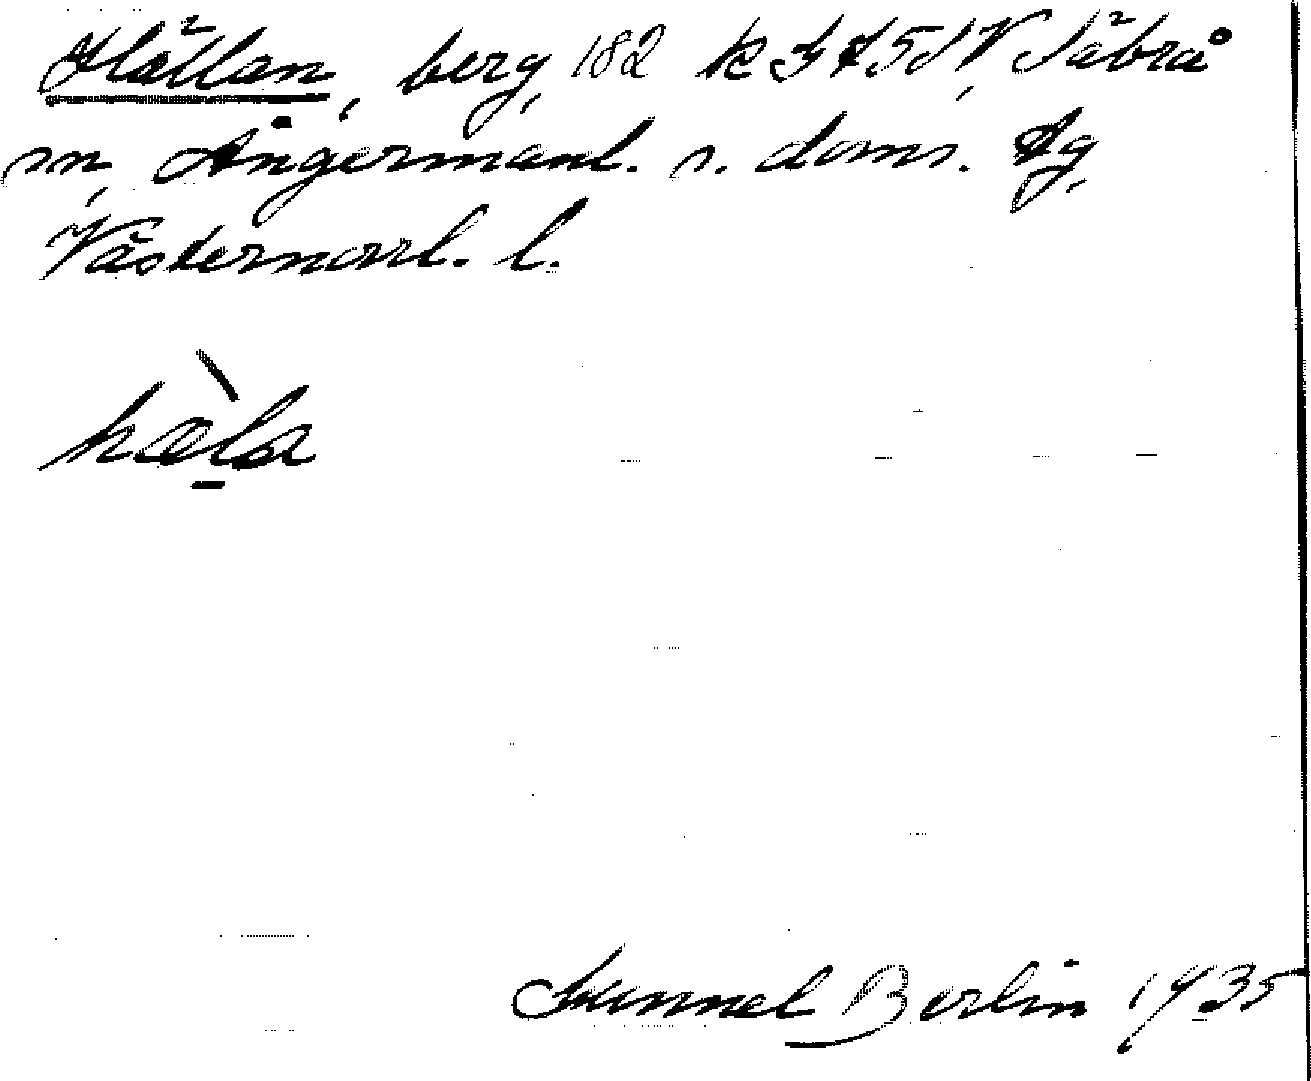 Hällan, berg, 182 k 3 A 5 d, V Säbrå
sn, Ångermanl. s. doms. tg,
Västernorrl. l.
hæ̀la
Gunnel Berlin 1935